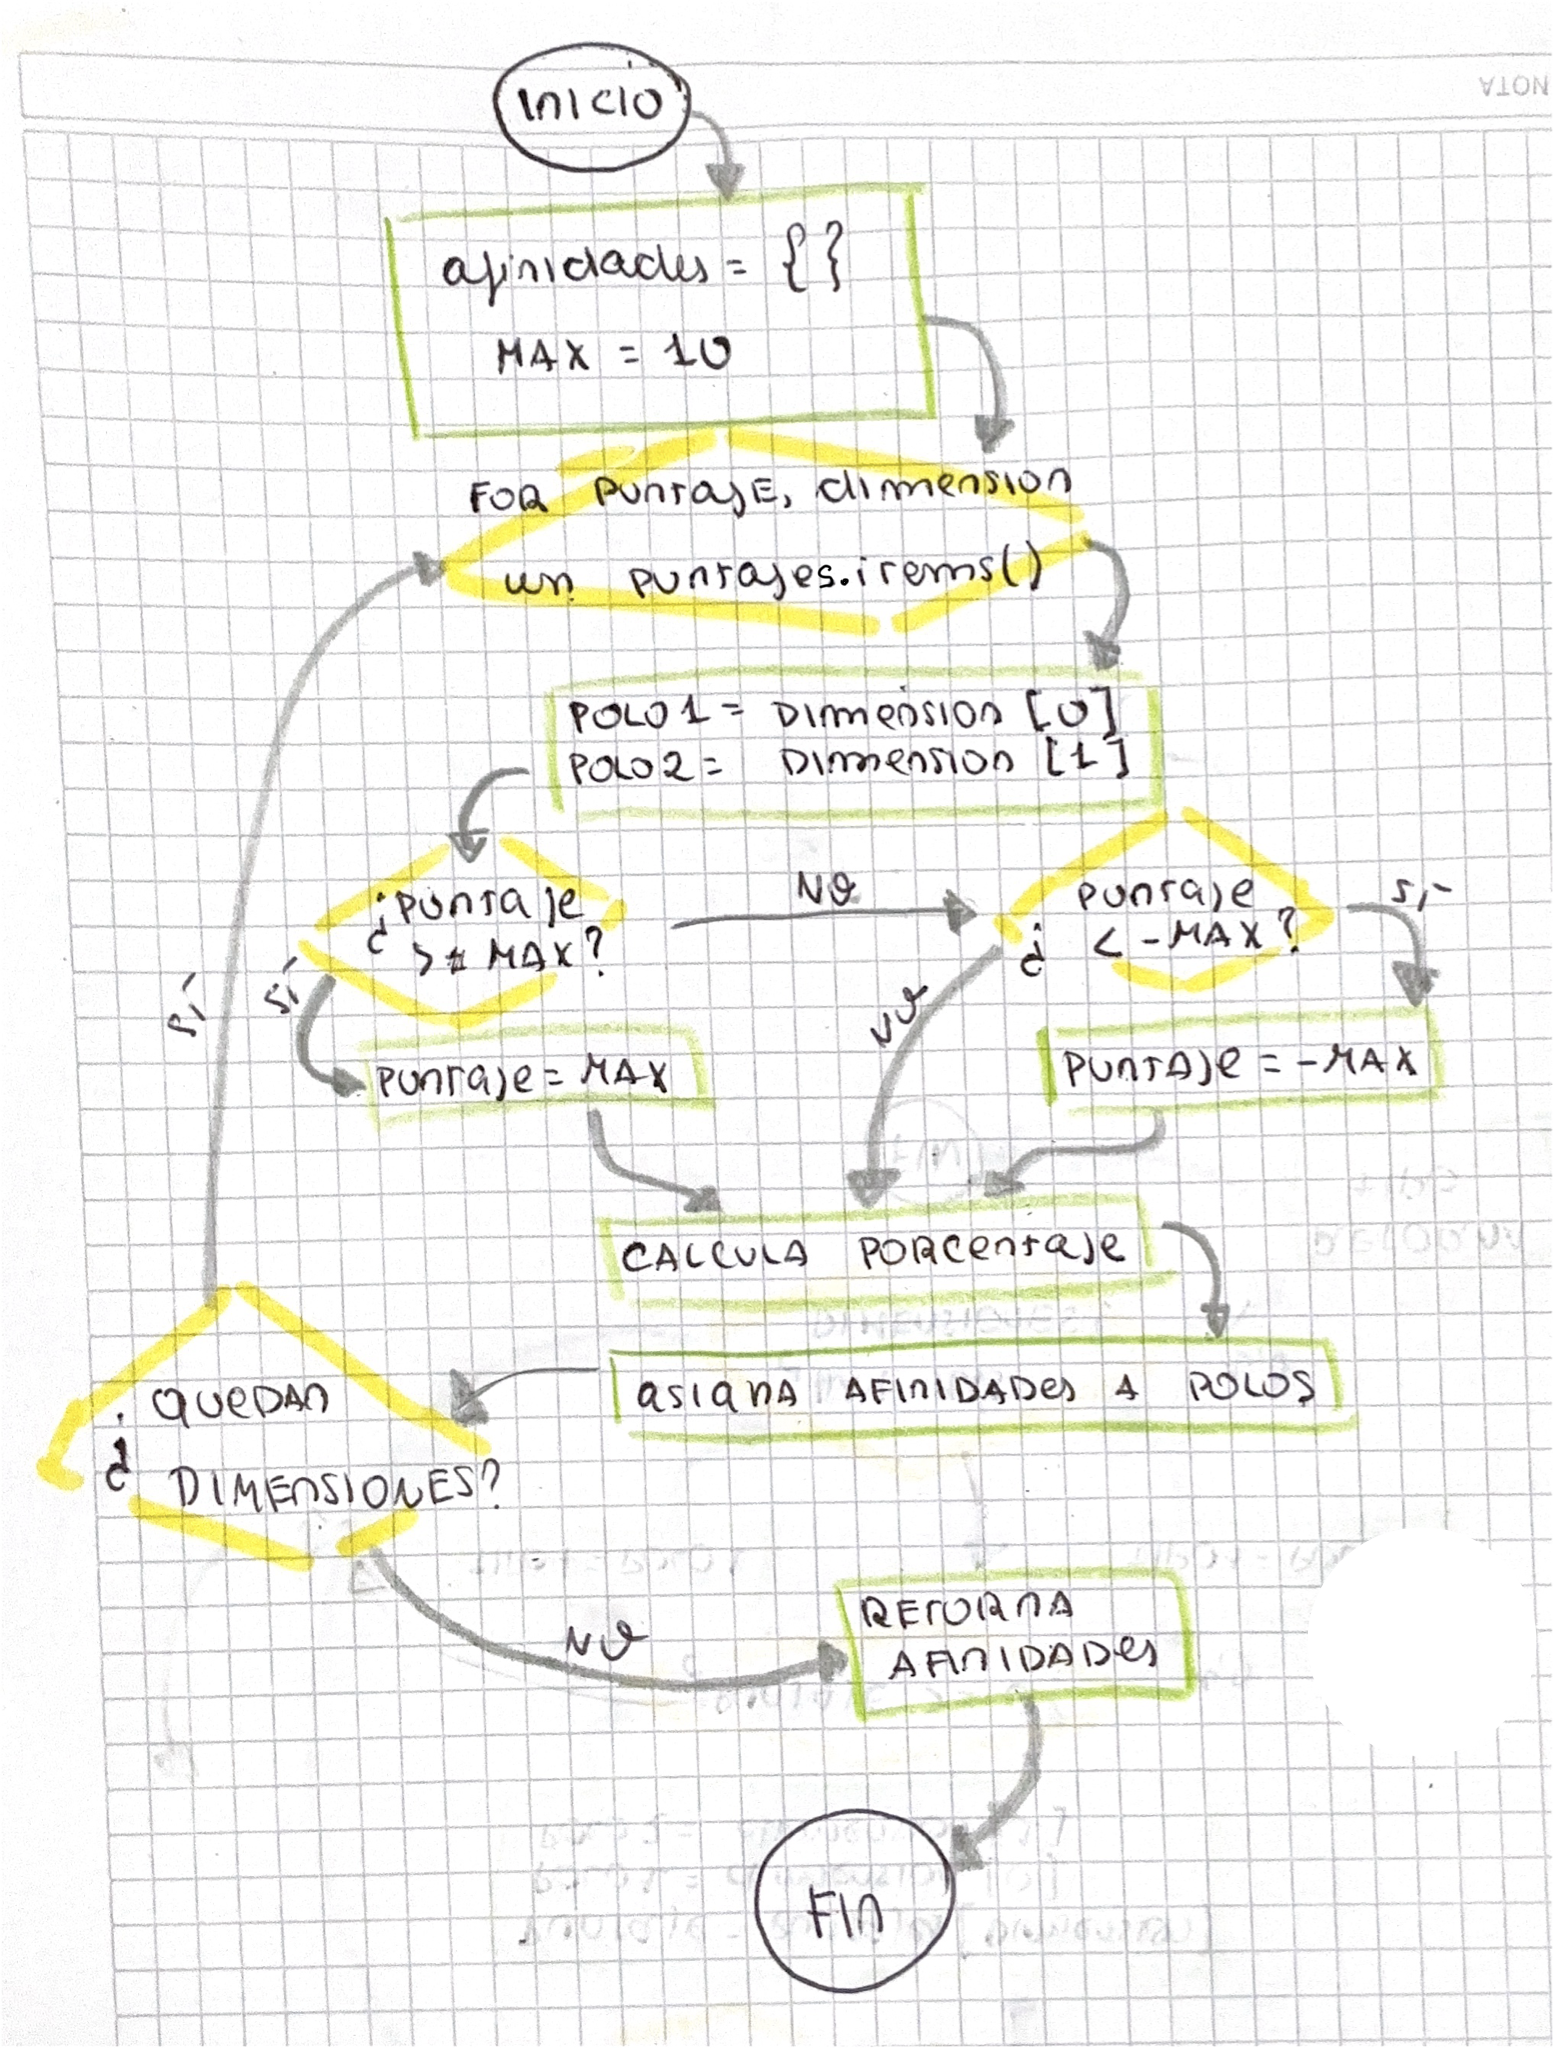 NOTA
inicio
afinidades = {}
MAX = 10
FOR puntaje, dimension
un puntajes.items()
POLO1 = Dimension [0]
POLO2 = Dimension [1]
¿puntaje
> MAX?
NO
puntaje
¿ < -MAX?
sí
sí
sí
NO
puntaje = MAX
puntaje = -MAX
CALCULA PORCentaje
asigna AFiniDADes A POLOS
¿ queDAn
DIMEnSIONES?
NO
RETORnA
AFiniDADes
Fin